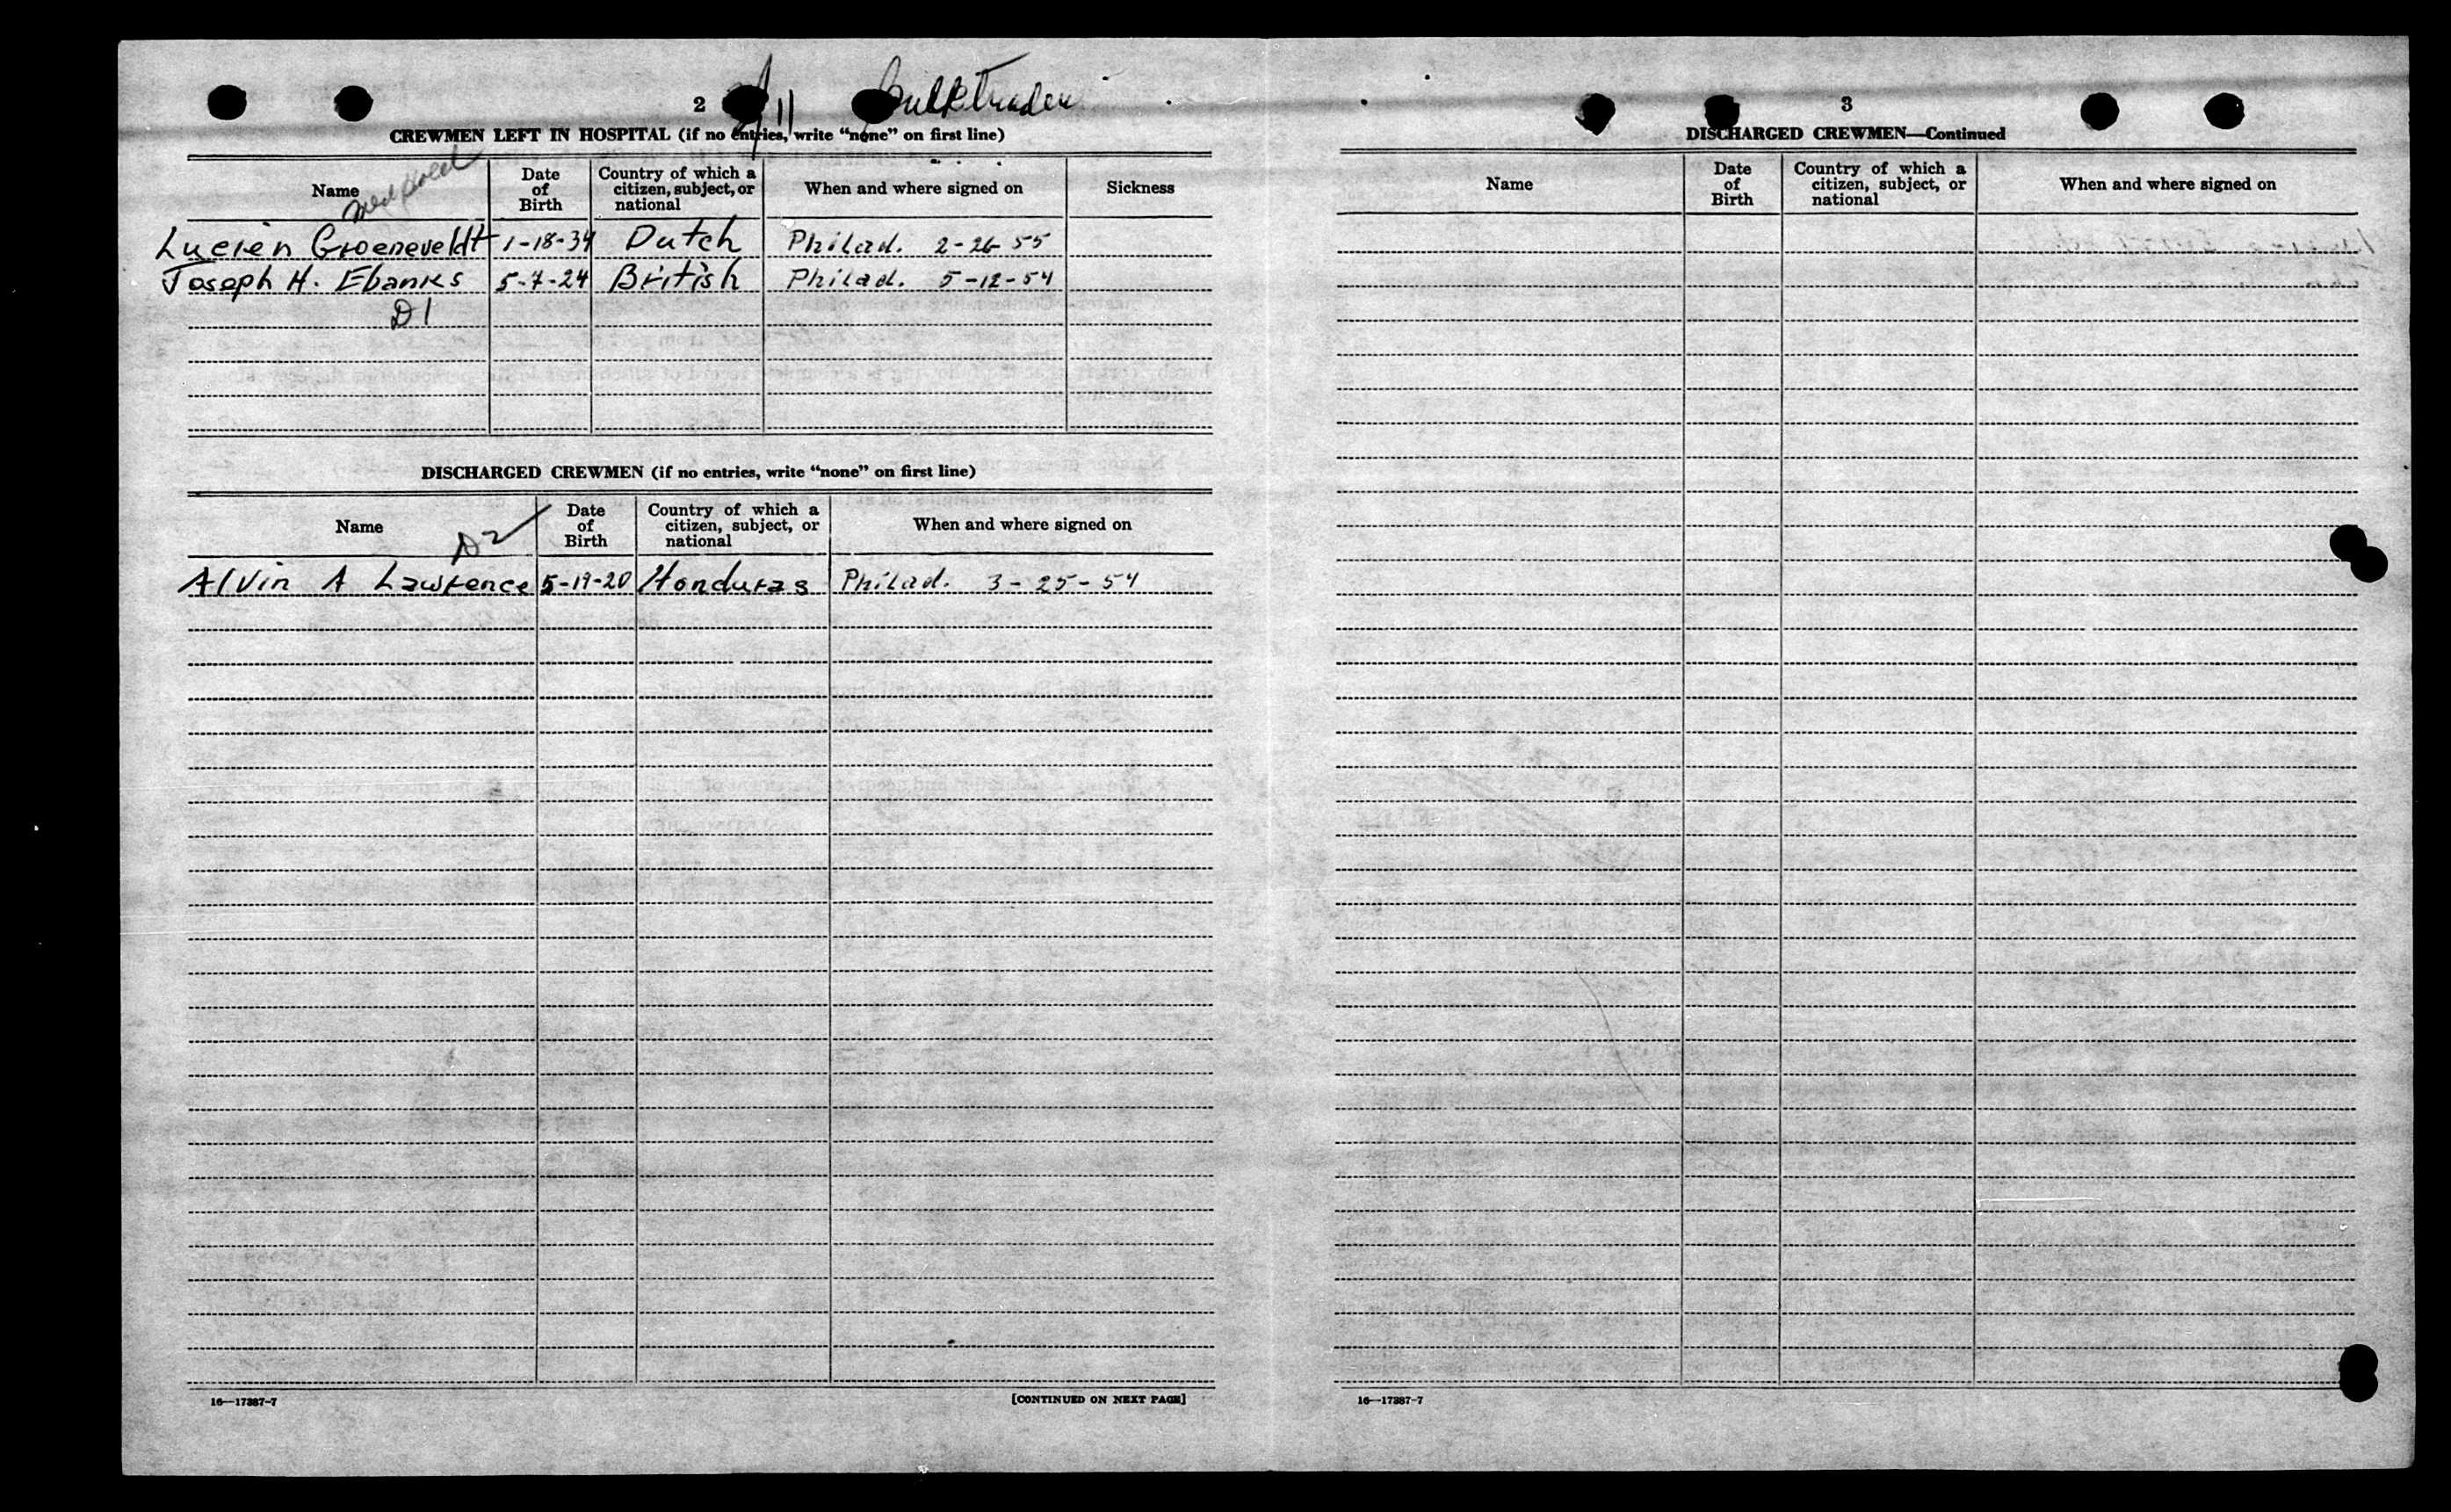 2
Bulktrader
CREWMEN LEFT IN HOSPITAL (if no entries, write “none” on first line)
Name
Date of Birth
Country of which a citizen, subject, or national
When and where signed on
Sickness
Lucien Groeneveldt 1-18-34 Dutch Philad. 2-26-55
Joseph H. Ebanks 5-7-24 British Philad. 5-12-54
D1
DISCHARGED CREWMEN (if no entries, write “none” on first line)
Name
D2
Date of Birth
Country of which a citizen, subject, or national
When and where signed on
Alvin A Lawrence 5-19-20 Honduras Philad. 3-25-54
16—17387-7
[CONTINUED ON NEXT PAGE]
3
DISCHARGED CREWMEN—Continued
Name
Date of Birth
Country of which a citizen, subject, or national
When and where signed on
16—17387-7